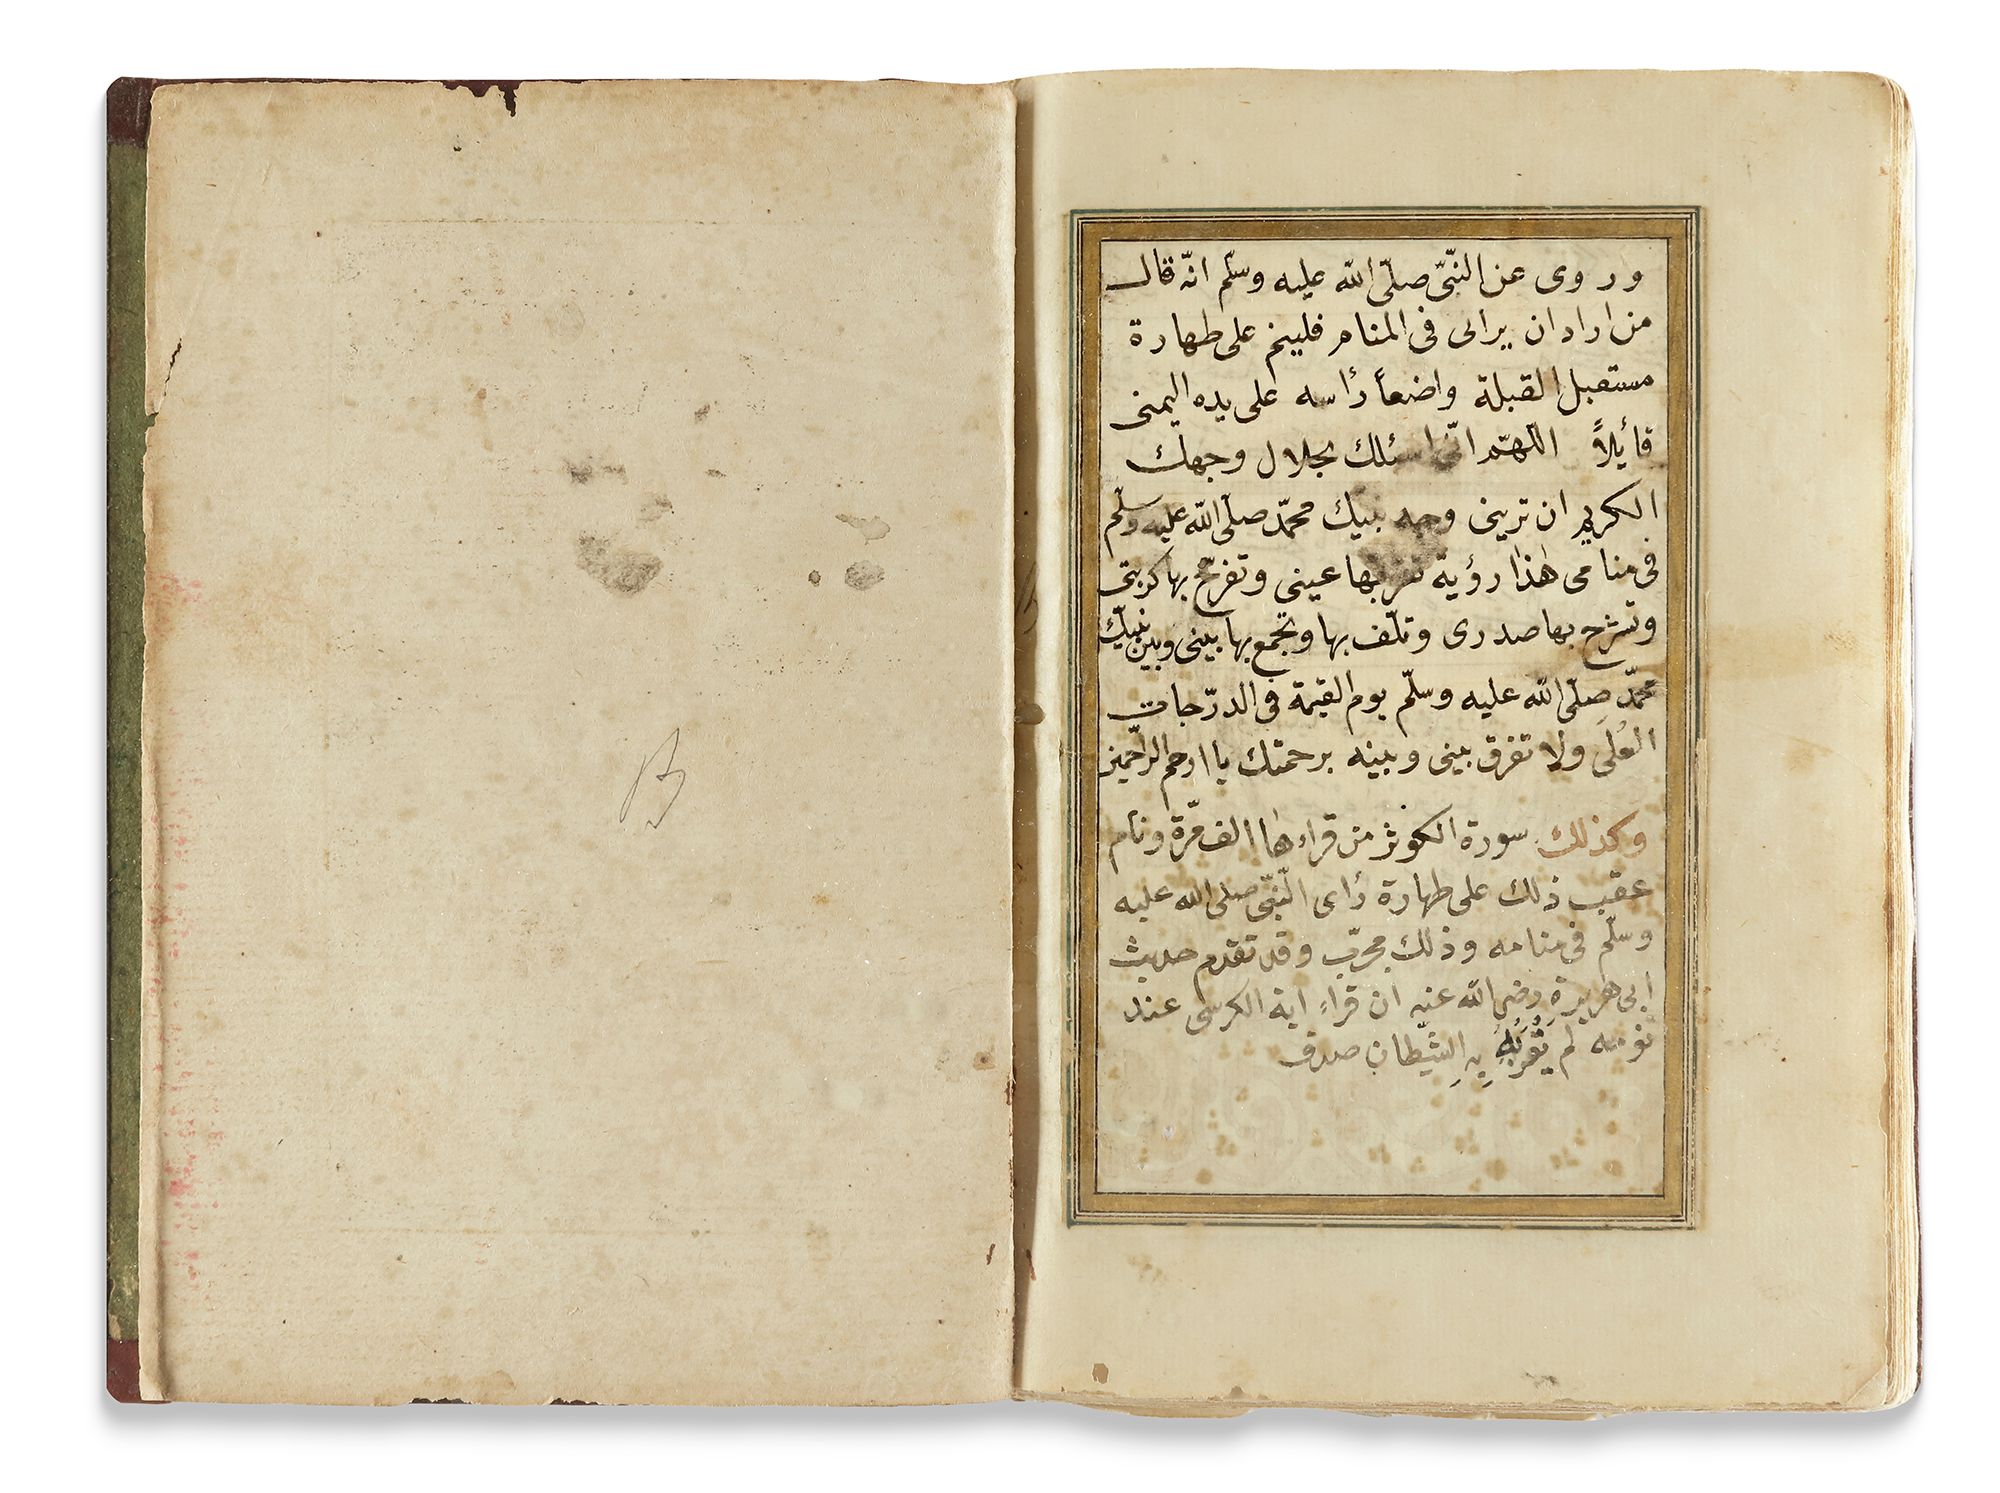 وروى عن النّبّى صلّى الله عليه وسلّم انّه قال
من اراد ان يرانى فى المنام فلينم على طهارة
مستقبل القبلة واضعاً رأسه على يده اليمنى
قأيلاً اللّهمّ انّى اسئلك بجلال وجهك
الكريم ان ترينى وجه نبيك محمّد صلّى الله عليه وسلّم
فى منامى هٰذا رؤية تقر بها عينى وتفرّج بها كربتى
وتشرح بها صدرى وتلّف بها وتجمع بها بينى وبين نبيّك
محمّد صلّى الله عليه وسلّم يوم القيمة فى الدرّجات
العُلَى ولا تفرق بينى وبينه برحمتك ياارحم الرّاحمين
وكذلك سورة الكوثر من قراءها الف مّرة ونام
عقيب ذلك على طهارة رأى النّبّى صلى الله عليه
وسلّم فى منامه وذلك مجرّب وقد تقدم حديث
ابى هريرة رضى الله عنه ان قراء اية الكرسى عند
نومه لم يَقْرَبُهُ بِهِ الشّيطان صدق
B